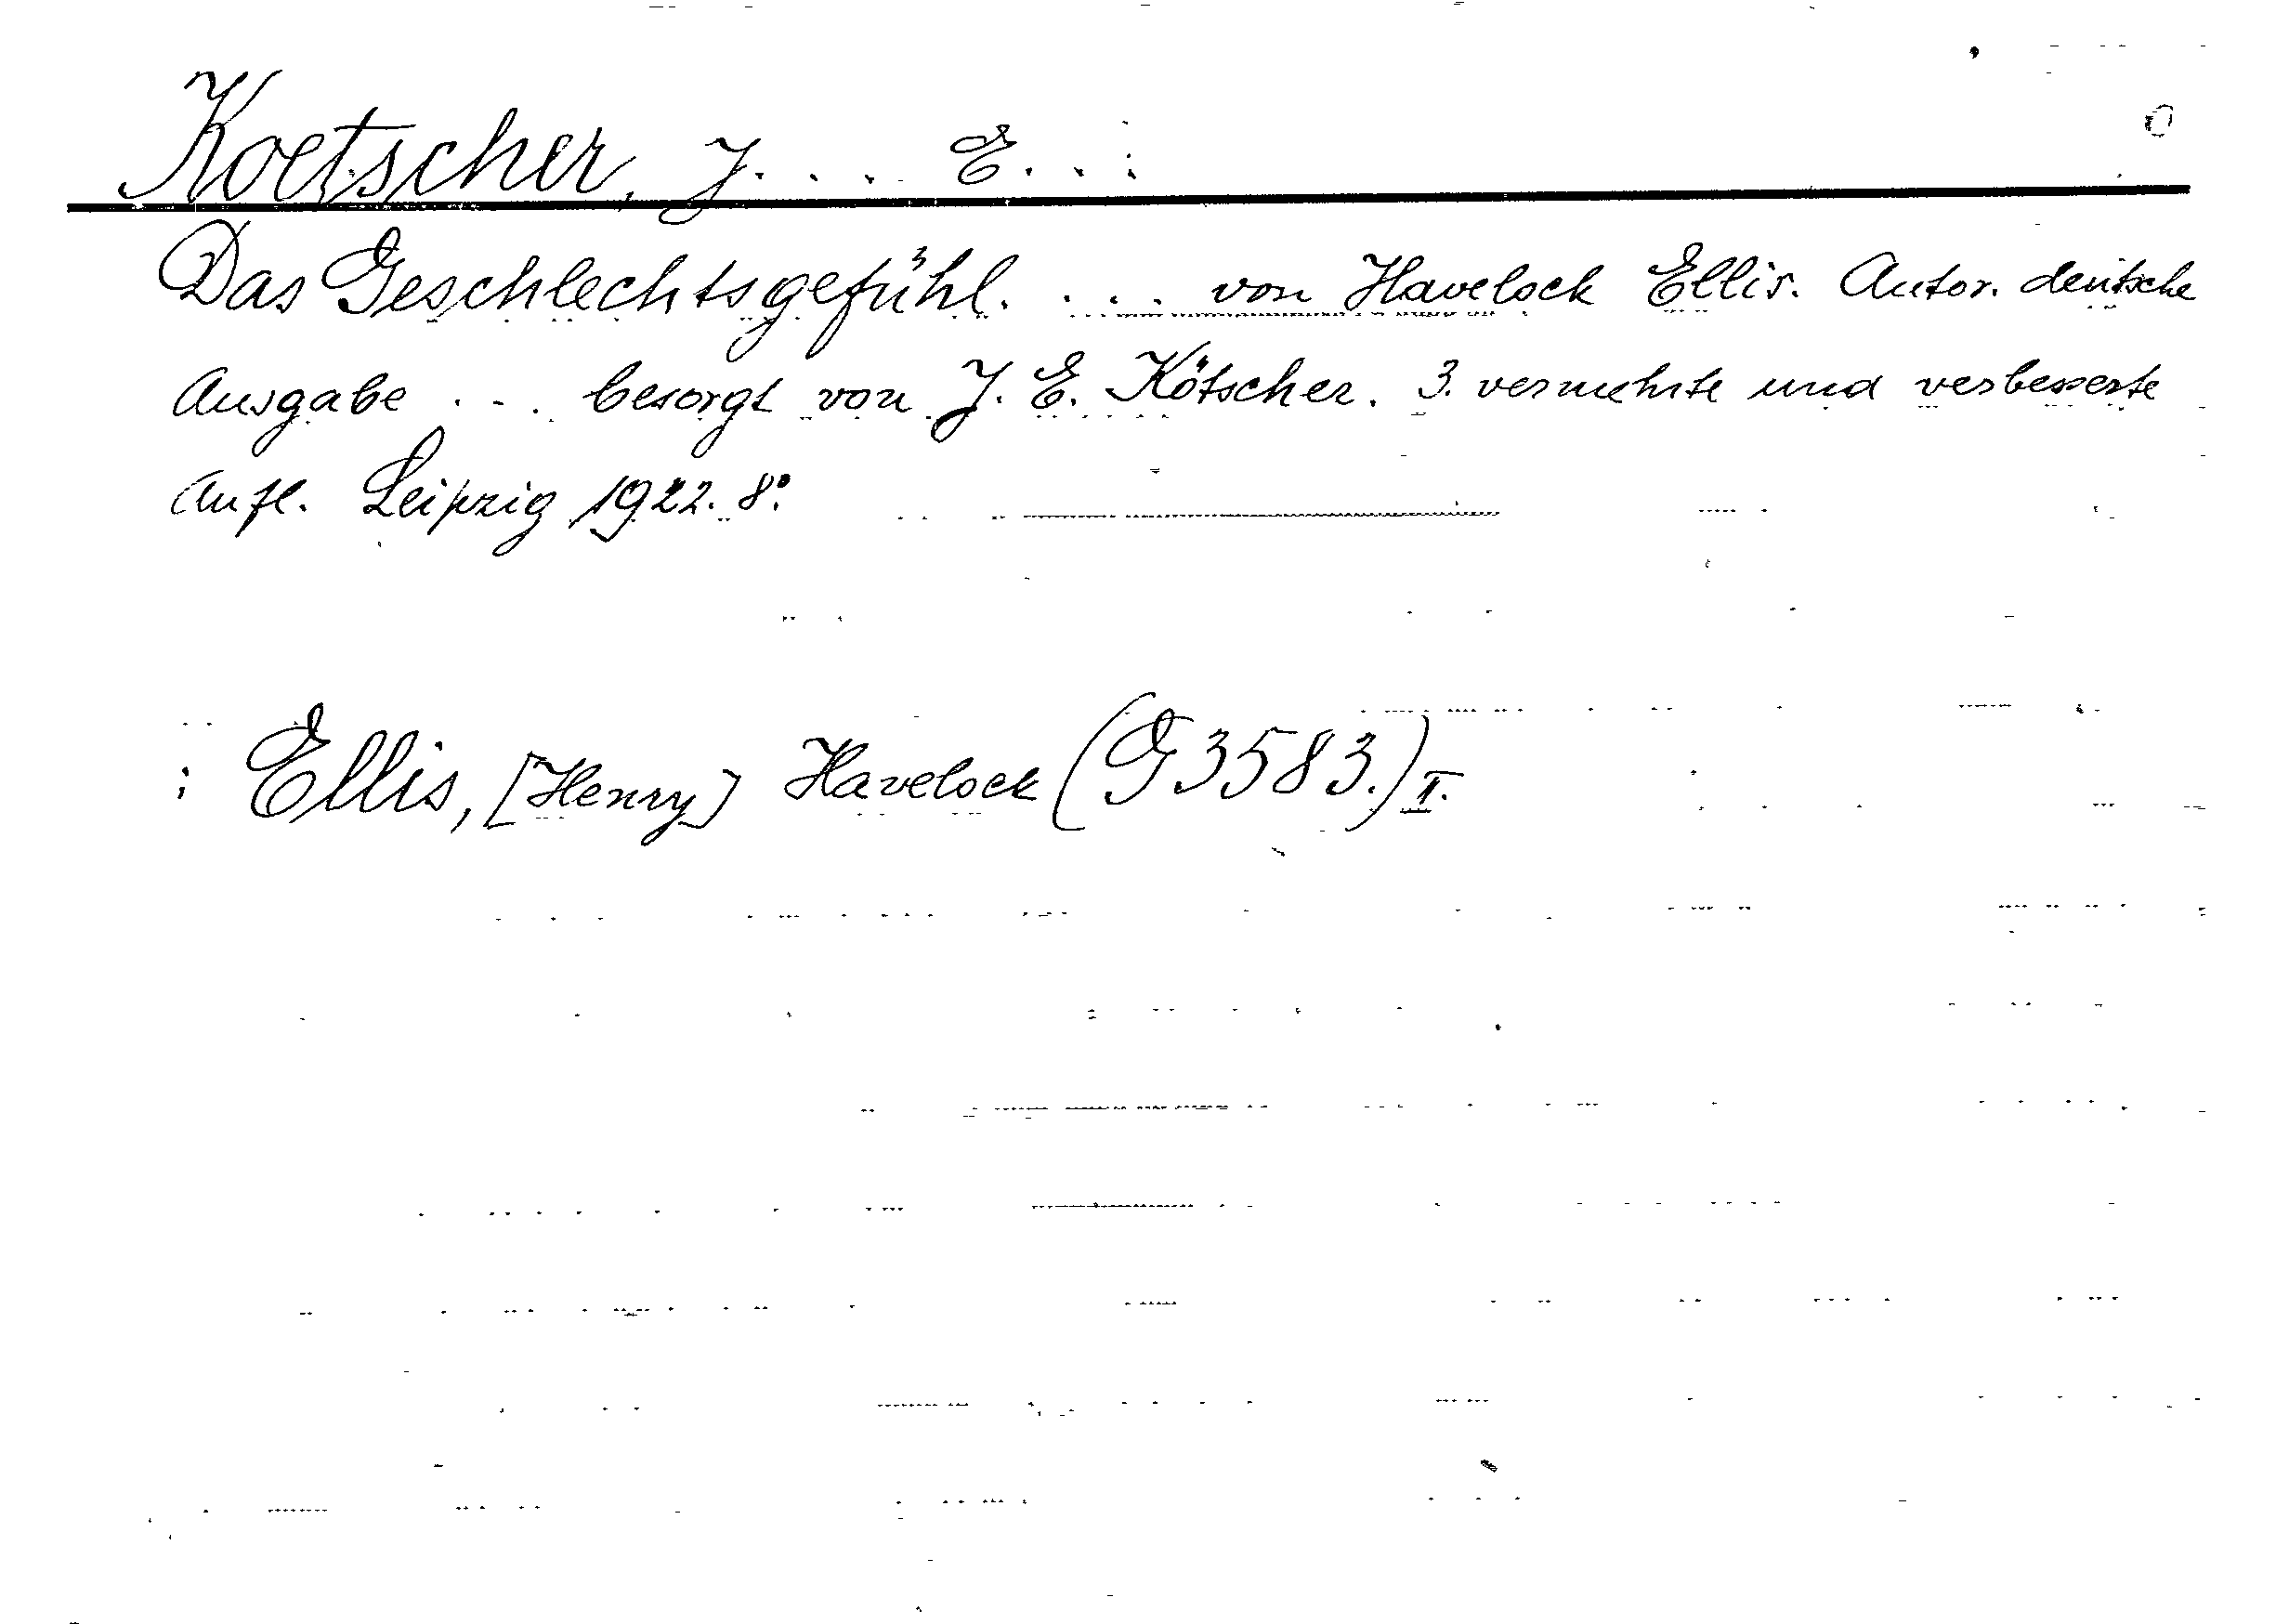 Koetscher, J. . . . E. . . :
Das Geschlechtsgefühl. . . . von Havelock Ellis. Autor. deutsche
Ausgabe . . . besorgt von J. E. Kötscher. 3. vermehrte und verbesserte
Aufl. Leipzig 1922. 8°.
: Ellis, [Henry] Havelock (G 3583.) I.